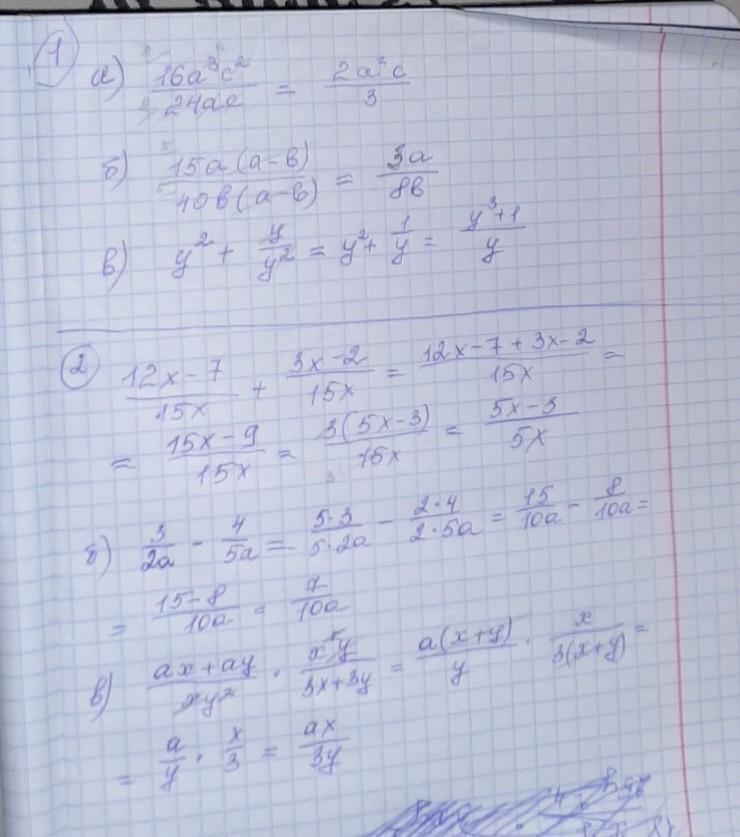 1
а) 16a³c²/24ac = 2a²c/3
б) 15a(a-b)/40b(a-b) = 3a/8b
в) y² + y/y² = y² + 1/y = (y³+1)/y
2 (12x-7)/15x + (3x-2)/15x = (12x-7+3x-2)/15x =
= (15x-9)/15x = 3(5x-3)/15x = (5x-3)/5x
б) 3/2a - 4/5a = 5·3/5·2a - 2·4/2·5a = 15/10a - 8/10a =
= (15-8)/10a = 7/10a
в) (ax+ay)/xy² · x²y/(3x+3y) = a(x+y)/y · x/3(x+y) =
= a/y · x/3 = ax/3y